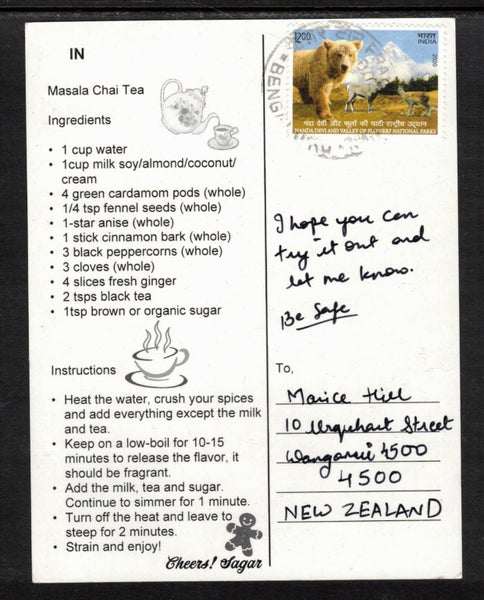 IN
Masala Chai Tea
Ingredients
• 1 cup water
• 1cup milk soy/almond/coconut/
cream
• 4 green cardamom pods (whole)
• 1/4 tsp fennel seeds (whole)
• 1-star anise (whole)
• 1 stick cinnamon bark (whole)
• 3 black peppercorns (whole)
• 3 cloves (whole)
• 4 slices fresh ginger
• 2 tsps black tea
• 1tsp brown or organic sugar
Instructions
• Heat the water, crush your spices
and add everything except the milk
and tea.
• Keep on a low-boil for 10-15
minutes to release the flavor, it
should be fragrant.
• Add the milk, tea and sugar.
Continue to simmer for 1 minute.
• Turn off the heat and leave to
steep for 2 minutes.
• Strain and enjoy!
Cheers! Sagar
1200
भारत
INDIA
2020
नंदा देवी और फूलों की घाटी राष्ट्रीय उद्यान
NANDA DEVI AND VALLEY OF FLOWERS NATIONAL PARKS
I hope you can
try it out and
let me know.
Be Safe
To,
Marice Hill
10 Urquhart Street
Wanganui 4500
4500
NEW ZEALAND